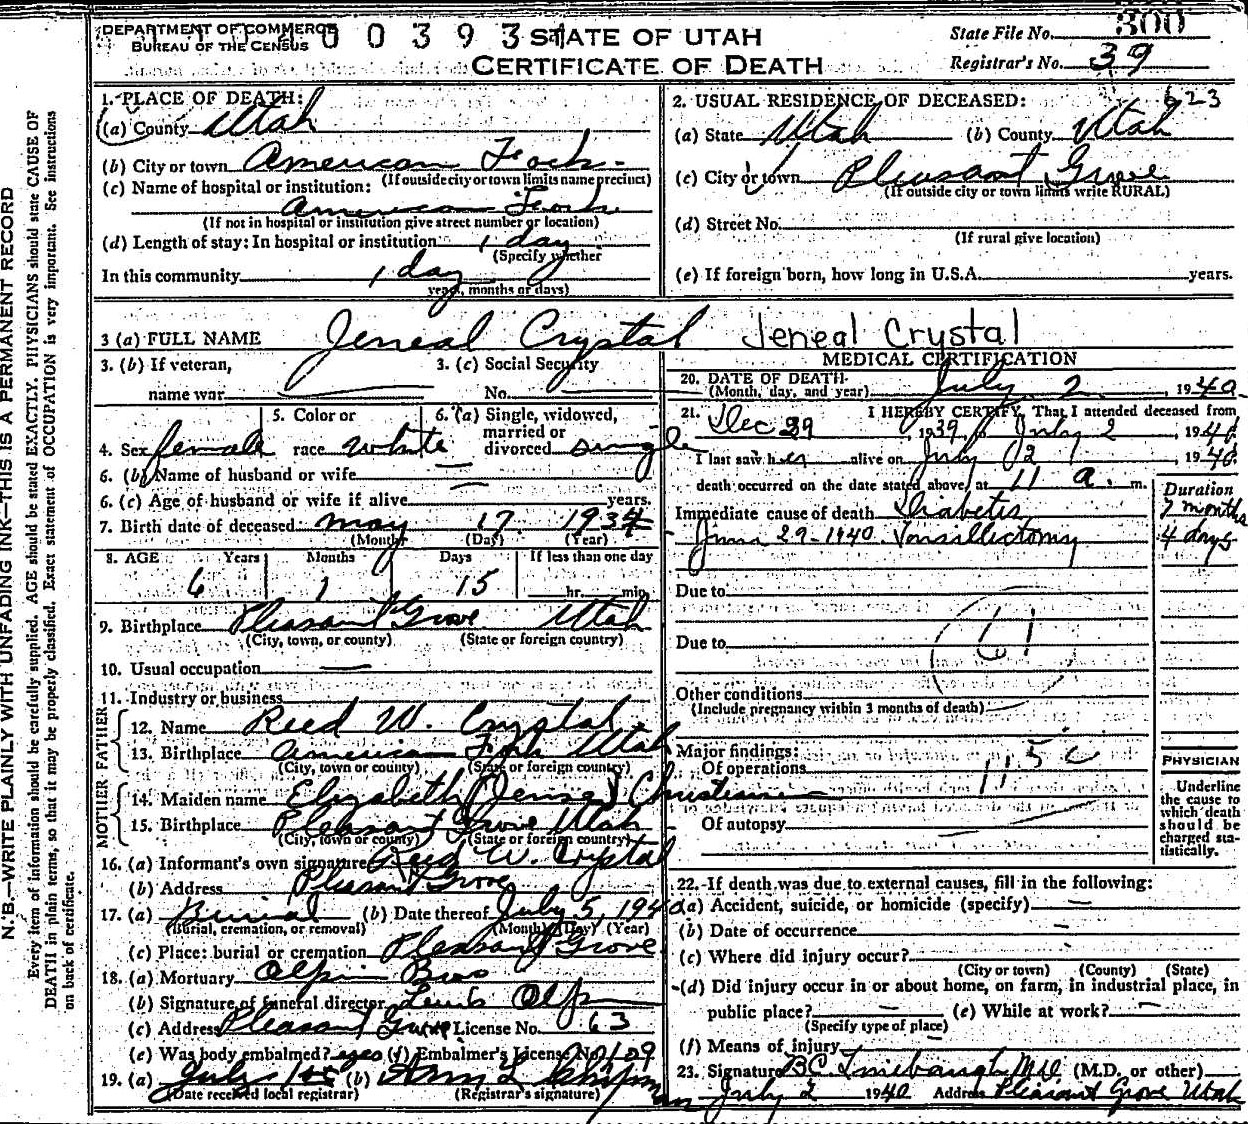 DEPARTMENT OF COMMERCE
BUREAU OF THE CENSUS
0 0 3 9 3
STATE OF UTAH
CERTIFICATE OF DEATH
State File No. 300
Registrar's No. 39
N.B.—WRITE PLAINLY WITH UNFADING INK—THIS IS A PERMANENT RECORD
Every item of information should be carefully supplied. AGE should be stated EXACTLY. PHYSICIANS should state CAUSE OF
DEATH in plain terms, so that it may be properly classified. Exact statement of OCCUPATION is very important. See instructions
on back of certificate.
1. PLACE OF DEATH:
(a) County Utah
(b) City or town American Fork
(If outside city or town limits name precinct)
(c) Name of hospital or institution:
American Fork
(If not in hospital or institution give street number or location)
(d) Length of stay: In hospital or institution 1 day
(Specify whether
In this community 1 day
years, months or days)
2. USUAL RESIDENCE OF DECEASED: 623
(a) State Utah (b) County Utah
(c) City or town Pleasant Grove
(If outside city or town limits write RURAL)
(d) Street No.
(If rural give location)
(e) If foreign born, how long in U.S.A. years.
3 (a) FULL NAME Jeneal Crystal Jeneal Crystal
3. (b) If veteran,
name war
3. (c) Social Security
No.
4. Sex female
5. Color or
race white
6. (a) Single, widowed,
married or
divorced single
6. (b) Name of husband or wife
6. (c) Age of husband or wife if alive years.
7. Birth date of deceased: May 17 1934
(Month) (Day) (Year)
8. AGE Years Months Days If less than one day
6 1 15 hr. min.
9. Birthplace Pleasant Grove Utah
(City, town, or county) (State or foreign country)
10. Usual occupation
11. Industry or business
FATHER
12. Name Reed W. Crystal
13. Birthplace American Fork Utah
(City, town or county) (State or foreign country)
MOTHER
14. Maiden name Elizabeth (Jense) Christiansen
15. Birthplace Pleasant Grove Utah
(City, town or county) (State or foreign country)
16. (a) Informant's own signature Reed W. Crystal
(b) Address Pleasant Grove
17. (a) Burial (b) Date thereof July 5, 1940
(Burial, cremation, or removal) (Month) (Day) (Year)
(c) Place: burial or cremation Pleasant Grove
18. (a) Mortuary Olpin Bros
(b) Signature of funeral director Lewis Olpin
(c) Address Pleasant Grove License No. 63
(e) Was body embalmed? yes (f) Embalmer's License No. 109
19. (a) July (b) Chipman
(Date received local registrar) (Registrar's signature)
MEDICAL CERTIFICATION
20. DATE OF DEATH-
(Month, day, and year) July 2, 1940
21. I HEREBY CERTIFY, That I attended deceased from
Dec 29, 1939, to July 2, 1940
I last saw her alive on July 2, 1940
death occurred on the date stated above, at 11 a. m.
Duration
Immediate cause of death Diabetes 7 months
June 29-1940 Tonsillectomy 4 days
Due to
61
Due to
Other conditions
(Include pregnancy within 3 months of death)
Major findings:
Of operations 115c
Of autopsy
PHYSICIAN
Underline
the cause to
which death
should be
charged sta-
tistically.
22. If death was due to external causes, fill in the following:
(a) Accident, suicide, or homicide (specify)
(b) Date of occurrence
(c) Where did injury occur?
(City or town) (County) (State)
(d) Did injury occur in or about home, on farm, in industrial place, in
public place? (e) While at work?
(Specify type of place)
(f) Means of injury
23. Signature BC Linebaugh MD (M.D. or other)
July 2 1940 Address Pleasant Grove Utah